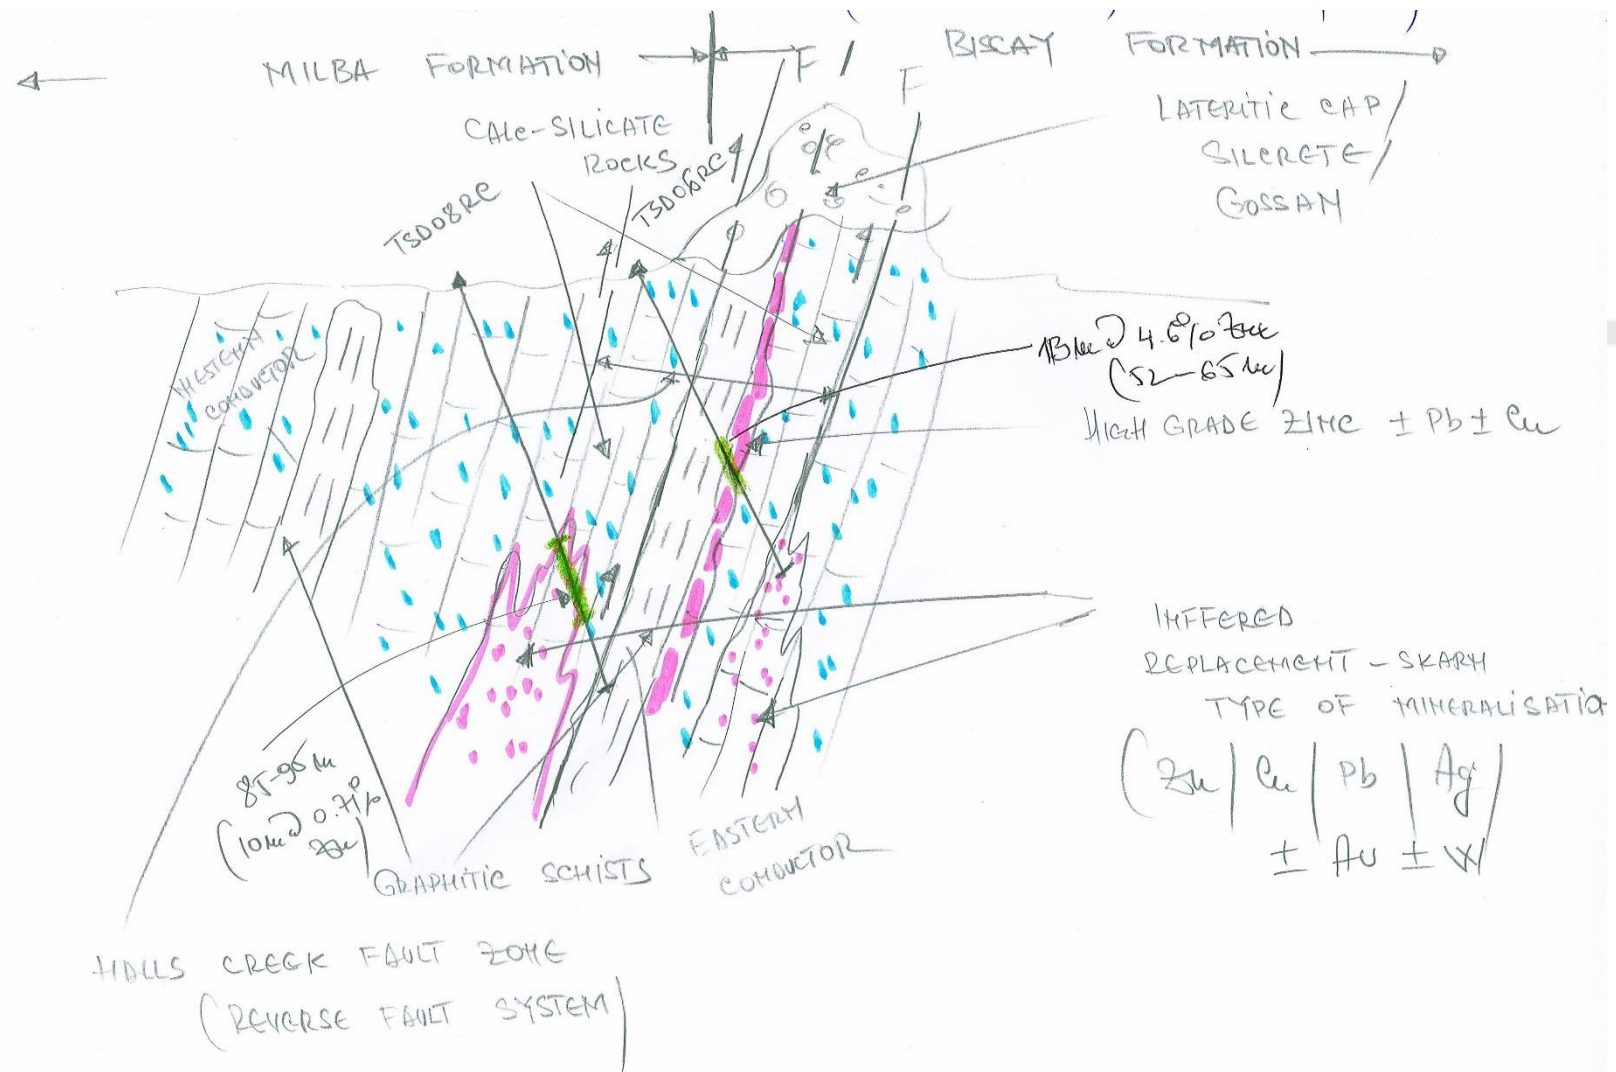 MILBA FORMATION
F
F
BISCAY FORMATION
LATERITIC CAP/
SILCRETE/
GOSSAN
CALC-SILICATE
ROCKS
TSD08RC
TSD06RC
WESTERN
CONDUCTOR
13m @ 4.6% Zinc
(52-65m)
HIGH GRADE ZINC ± Pb ± Cu
INFFERED
REPLACEMENT - SKARN
TYPE OF MINERALISATIO
(Zn/Cu/Pb/Ag/
± Au ± W)
85-95m
(10m @ 0.71%
Zn)
GRAPHITIC SCHISTS
EASTERN
CONDUCTOR
HALLS CREEK FAULT ZONE
(REVERSE FAULT SYSTEM)